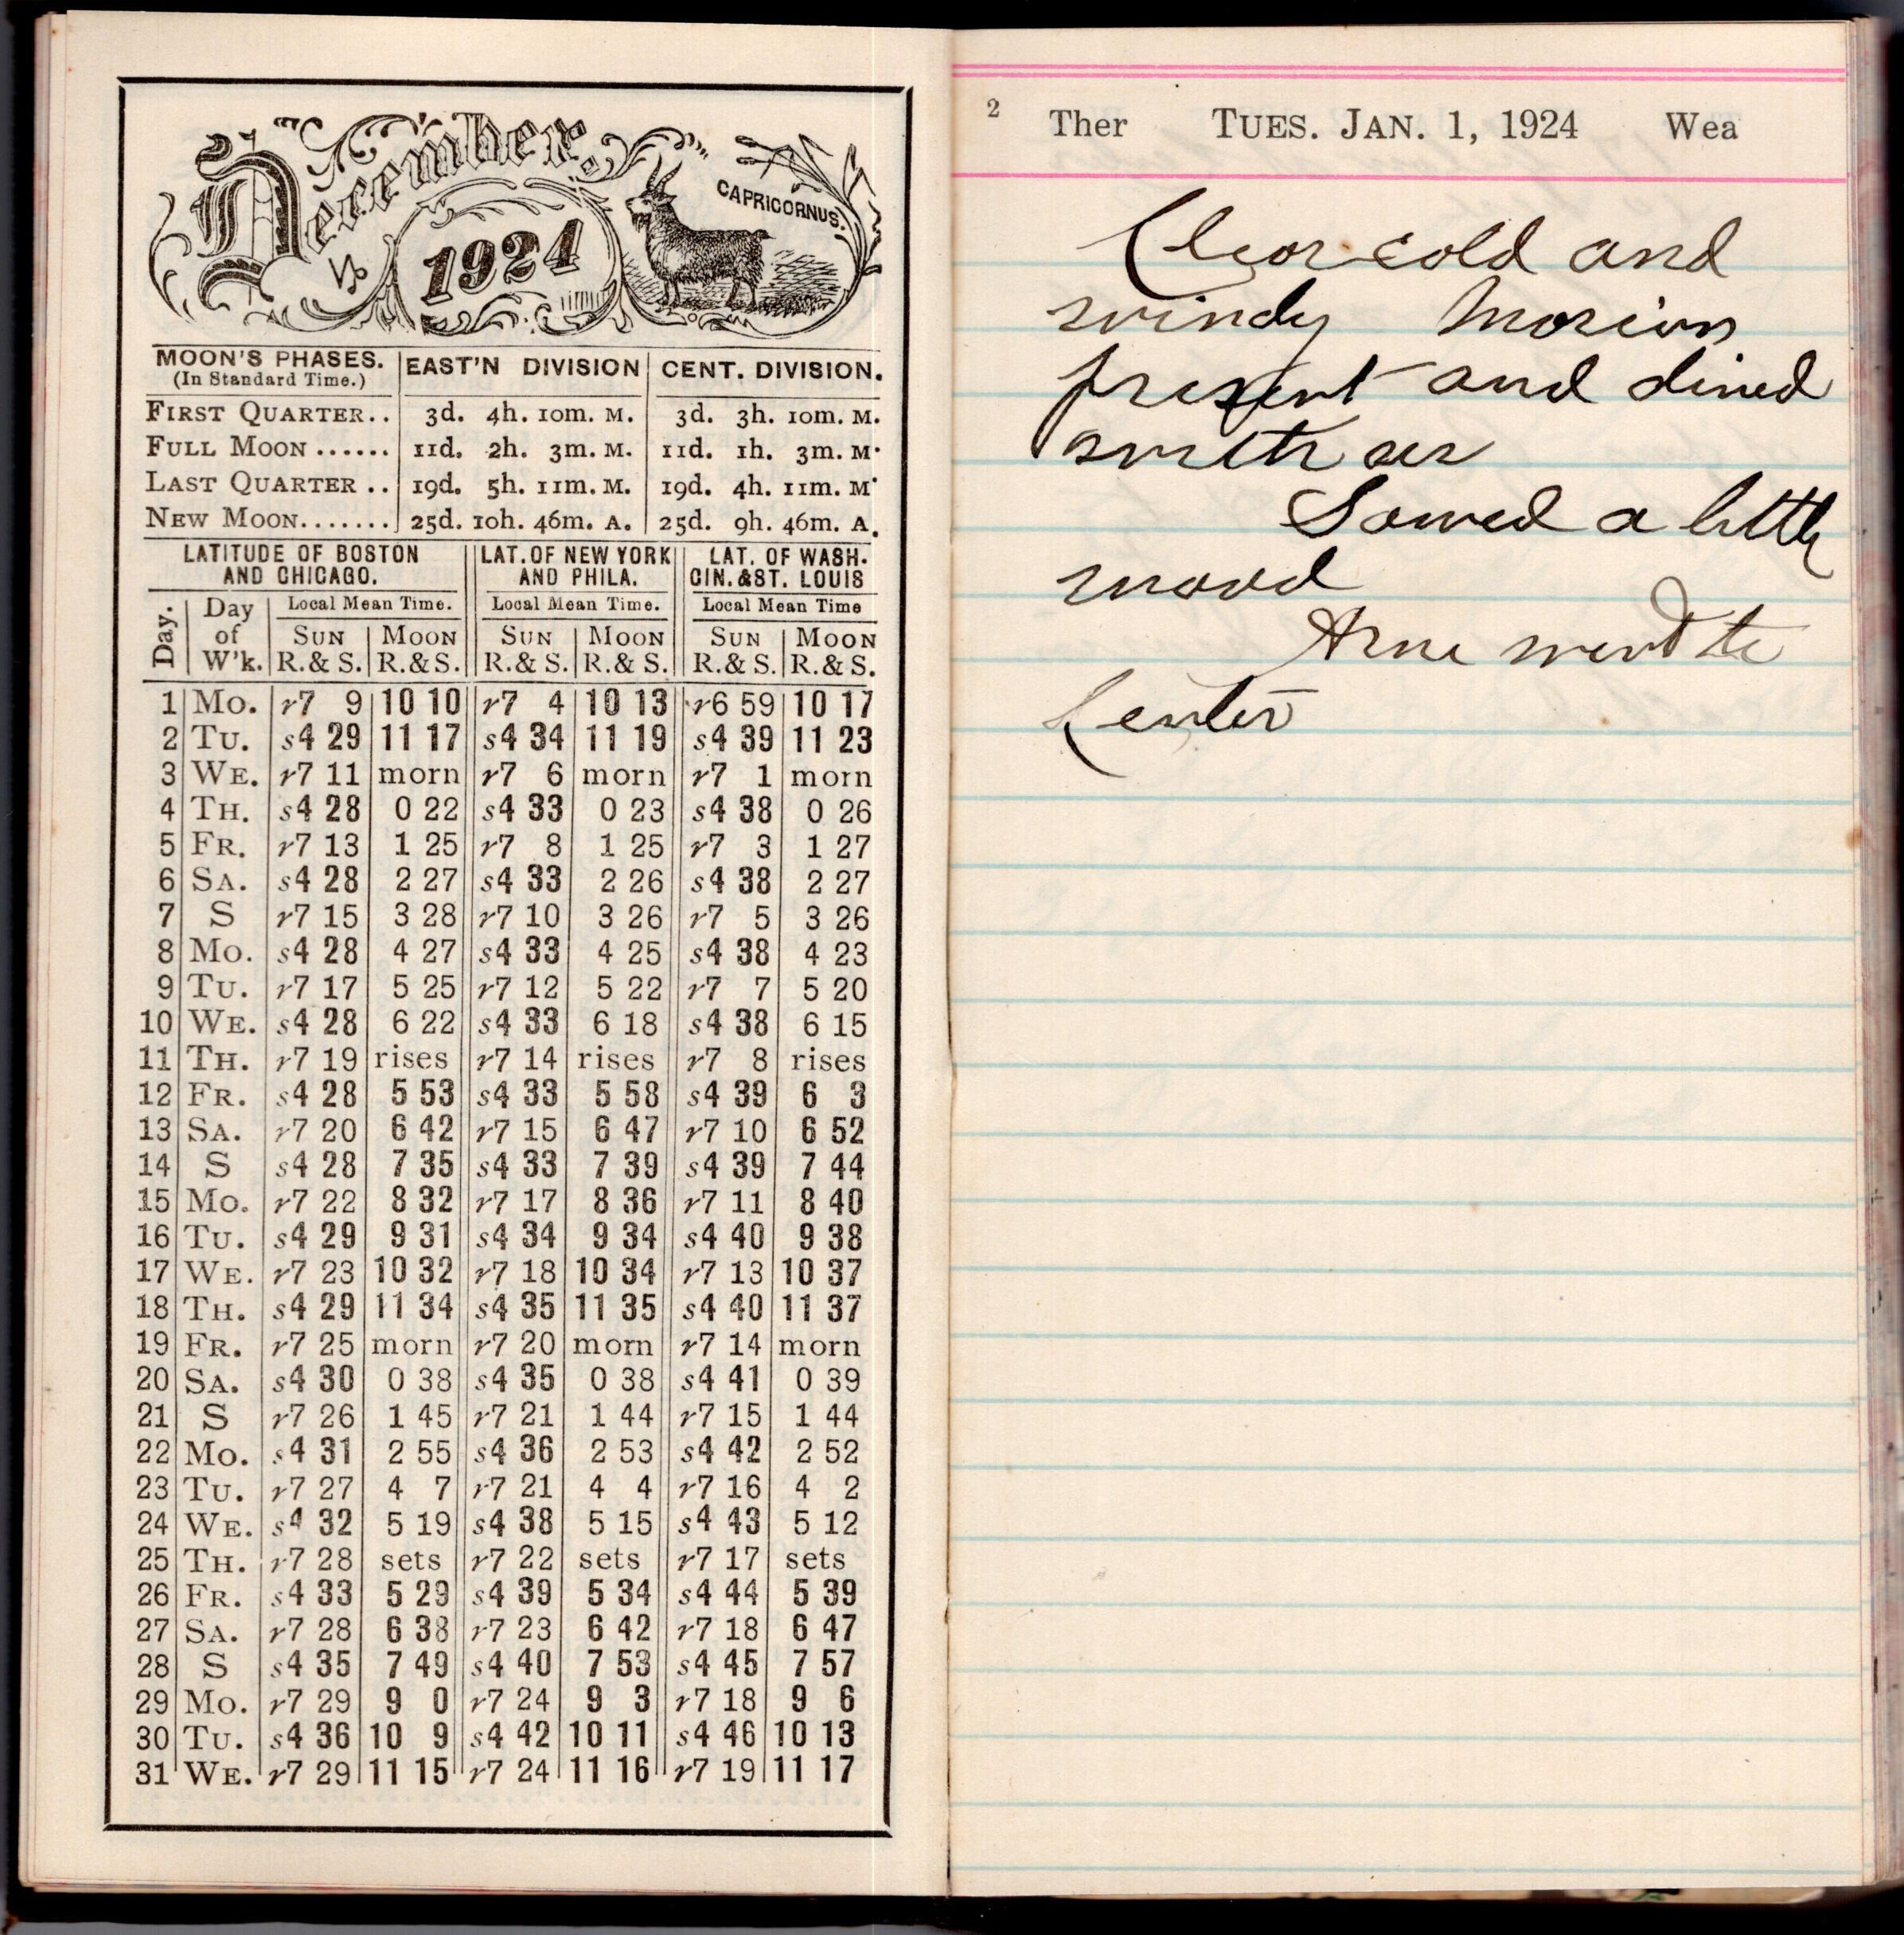 December.
1924
CAPRICORNUS.
MOON'S PHASES. (In Standard Time.) EAST'N DIVISION CENT. DIVISION.
FIRST QUARTER.. 3d. 4h. 10m. M. 3d. 3h. 10m. M.
FULL MOON ...... 11d. 2h. 3m. M. 11d. 1h. 3m. M.
LAST QUARTER .. 19d. 5h. 11m. M. 19d. 4h. 11m. M.
NEW MOON....... 25d. 10h. 46m. A. 25d. 9h. 46m. A.
LATITUDE OF BOSTON AND CHICAGO. LAT. OF NEW YORK AND PHILA. LAT. OF WASH. CIN. & ST. LOUIS
Day. Day of W'k. Local Mean Time. Local Mean Time. Local Mean Time
SUN R. & S. MOON R. & S. SUN R. & S. MOON R. & S. SUN R. & S. MOON R. & S.
1 MO. r7 9 10 10 r7 4 10 13 r6 59 10 17
2 TU. s4 29 11 17 s4 34 11 19 s4 39 11 23
3 WE. r7 11 morn r7 6 morn r7 1 morn
4 TH. s4 28 0 22 s4 33 0 23 s4 38 0 26
5 FR. r7 13 1 25 r7 8 1 25 r7 3 1 27
6 SA. s4 28 2 27 s4 33 2 26 s4 38 2 27
7 S r7 15 3 28 r7 10 3 26 r7 5 3 26
8 MO. s4 28 4 27 s4 33 4 25 s4 38 4 23
9 TU. r7 17 5 25 r7 12 5 22 r7 7 5 20
10 WE. s4 28 6 22 s4 33 6 18 s4 38 6 15
11 TH. r7 19 rises r7 14 rises r7 8 rises
12 FR. s4 28 5 53 s4 33 5 58 s4 39 6 3
13 SA. r7 20 6 42 r7 15 6 47 r7 10 6 52
14 S s4 28 7 35 s4 33 7 39 s4 39 7 44
15 MO. r7 22 8 32 r7 17 8 36 r7 11 8 40
16 TU. s4 29 9 31 s4 34 9 34 s4 40 9 38
17 WE. r7 23 10 32 r7 18 10 34 r7 13 10 37
18 TH. s4 29 11 34 s4 35 11 35 s4 40 11 37
19 FR. r7 25 morn r7 20 morn r7 14 morn
20 SA. s4 30 0 38 s4 35 0 38 s4 41 0 39
21 S r7 26 1 45 r7 21 1 44 r7 15 1 44
22 MO. s4 31 2 55 s4 36 2 53 s4 42 2 52
23 TU. r7 27 4 7 r7 21 4 4 r7 16 4 2
24 WE. s4 32 5 19 s4 38 5 15 s4 43 5 12
25 TH. r7 28 sets r7 22 sets r7 17 sets
26 FR. s4 33 5 29 s4 39 5 34 s4 44 5 39
27 SA. r7 28 6 38 r7 23 6 42 r7 18 6 47
28 S s4 35 7 49 s4 40 7 53 s4 45 7 57
29 MO. r7 29 9 0 r7 24 9 3 r7 18 9 6
30 TU. s4 36 10 9 s4 42 10 11 s4 46 10 13
31 WE. r7 29 11 15 r7 24 11 16 r7 19 11 17
2 Ther TUES. JAN. 1, 1924 Wea
Clear cold and
windy Marion
present and dined
with us
Sawed a little
wood
Arne went to
Center